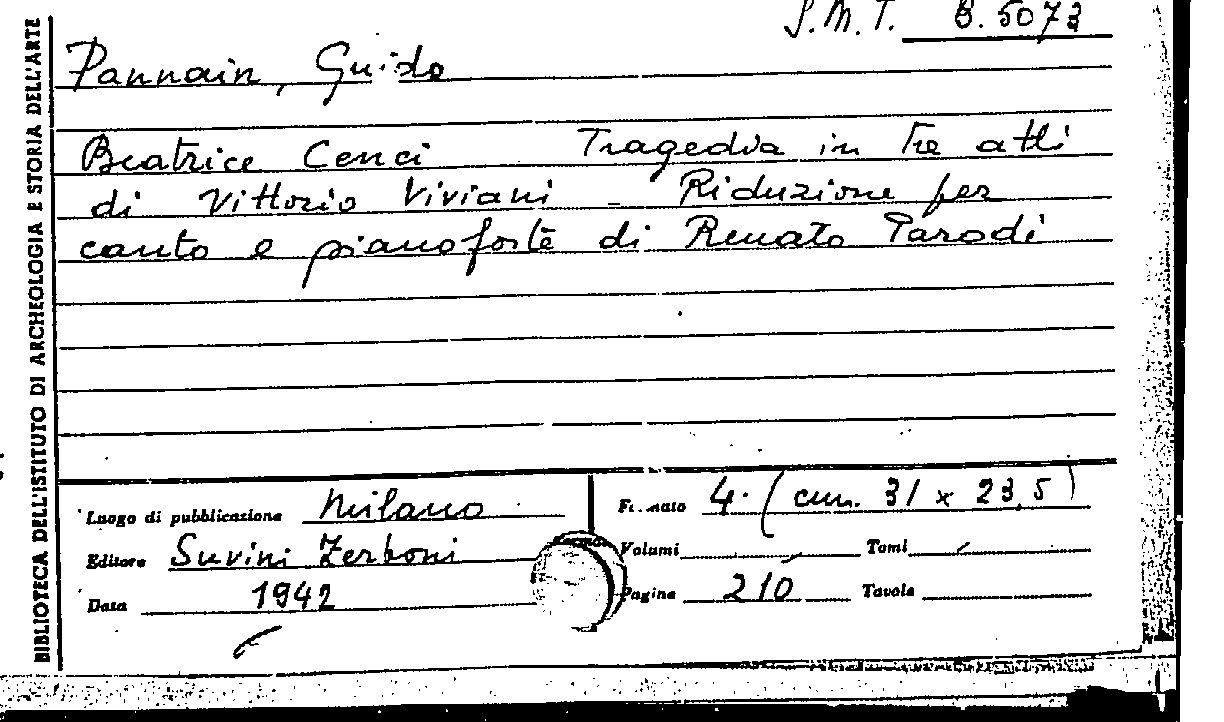 S.M.T. B. 5073
Pannain, Guido
Beatrice Cenci Tragedia in tre atti
di Vittorio Viviani - Riduzione per
canto e pianoforte di Renato Parodi
BIBLIOTECA DELL'ISTITUTO DI ARCHEOLOGIA E STORIA DELL'ARTE
Luogo di pubblicazione Milano
Formato 4° (cm. 31 x 23,5)
Editore Suvini Zerboni
Volumi Tomi
Data 1942
Pagine 210 Tavole